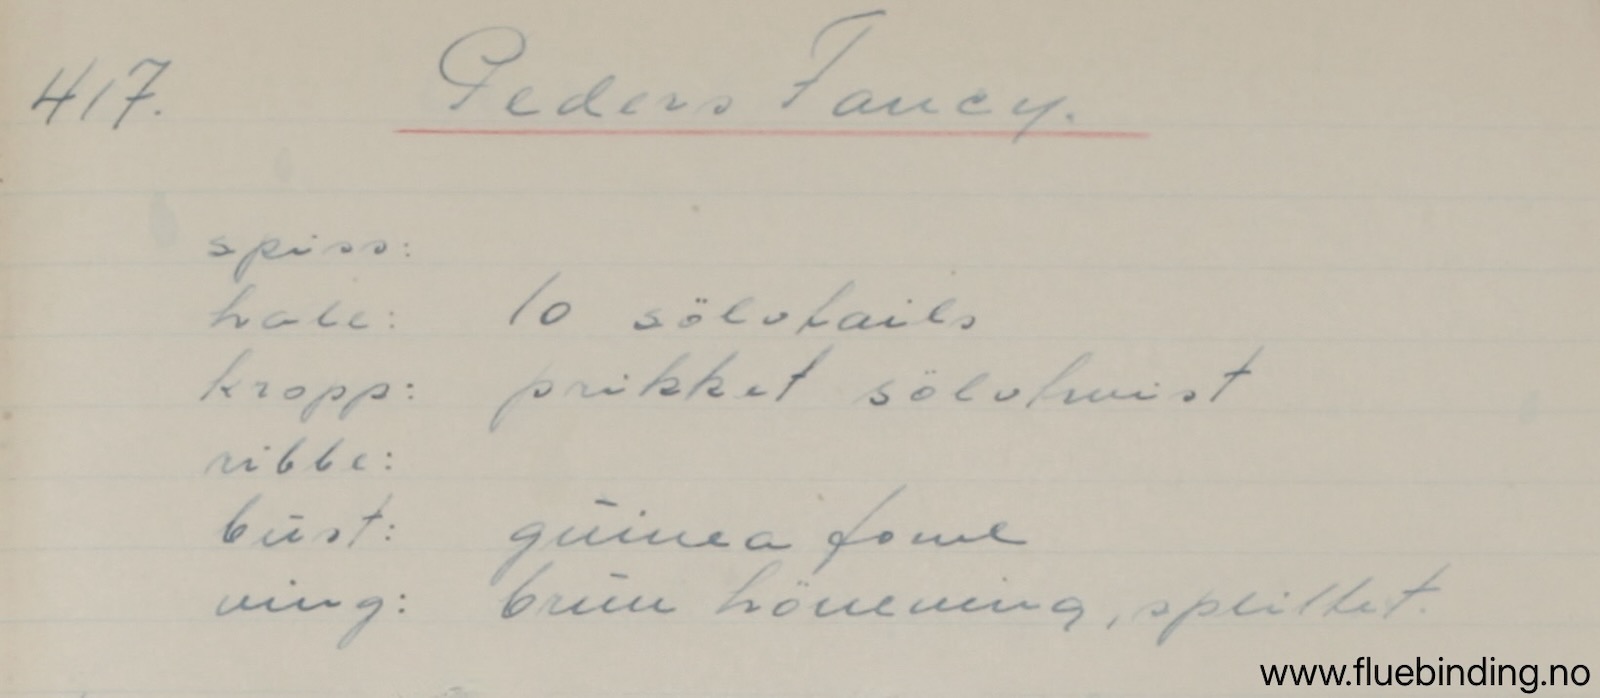 417. Peders Fancy.
spiss:
hale: 10 sölvtails
kropp: prikket sölvtwist
ribbe:
būst: gūinea fowl
ving: brūn hönevving, splittet.
www.fluebinding.no